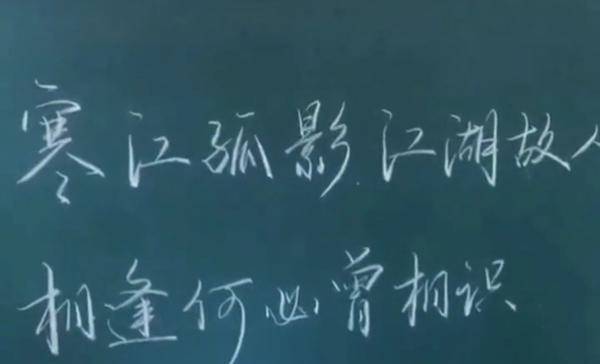 寒江孤影江湖故人
相逢何必曾相识